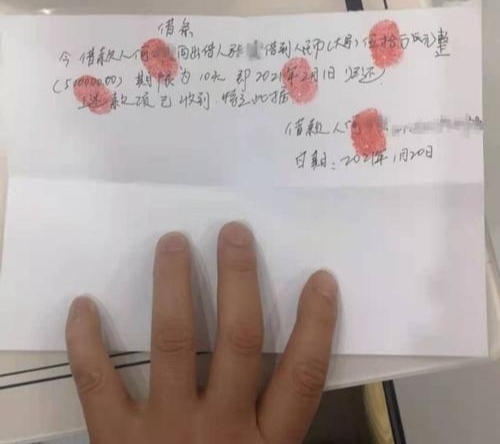 借条
今借款人何 向出借人张 借到人民币(大写)伍拾万元整
(500000.00)期限为10天 即2021年2月1日归还
上述款项已收到 特立此据
借款人何
日期:2021年1月20日